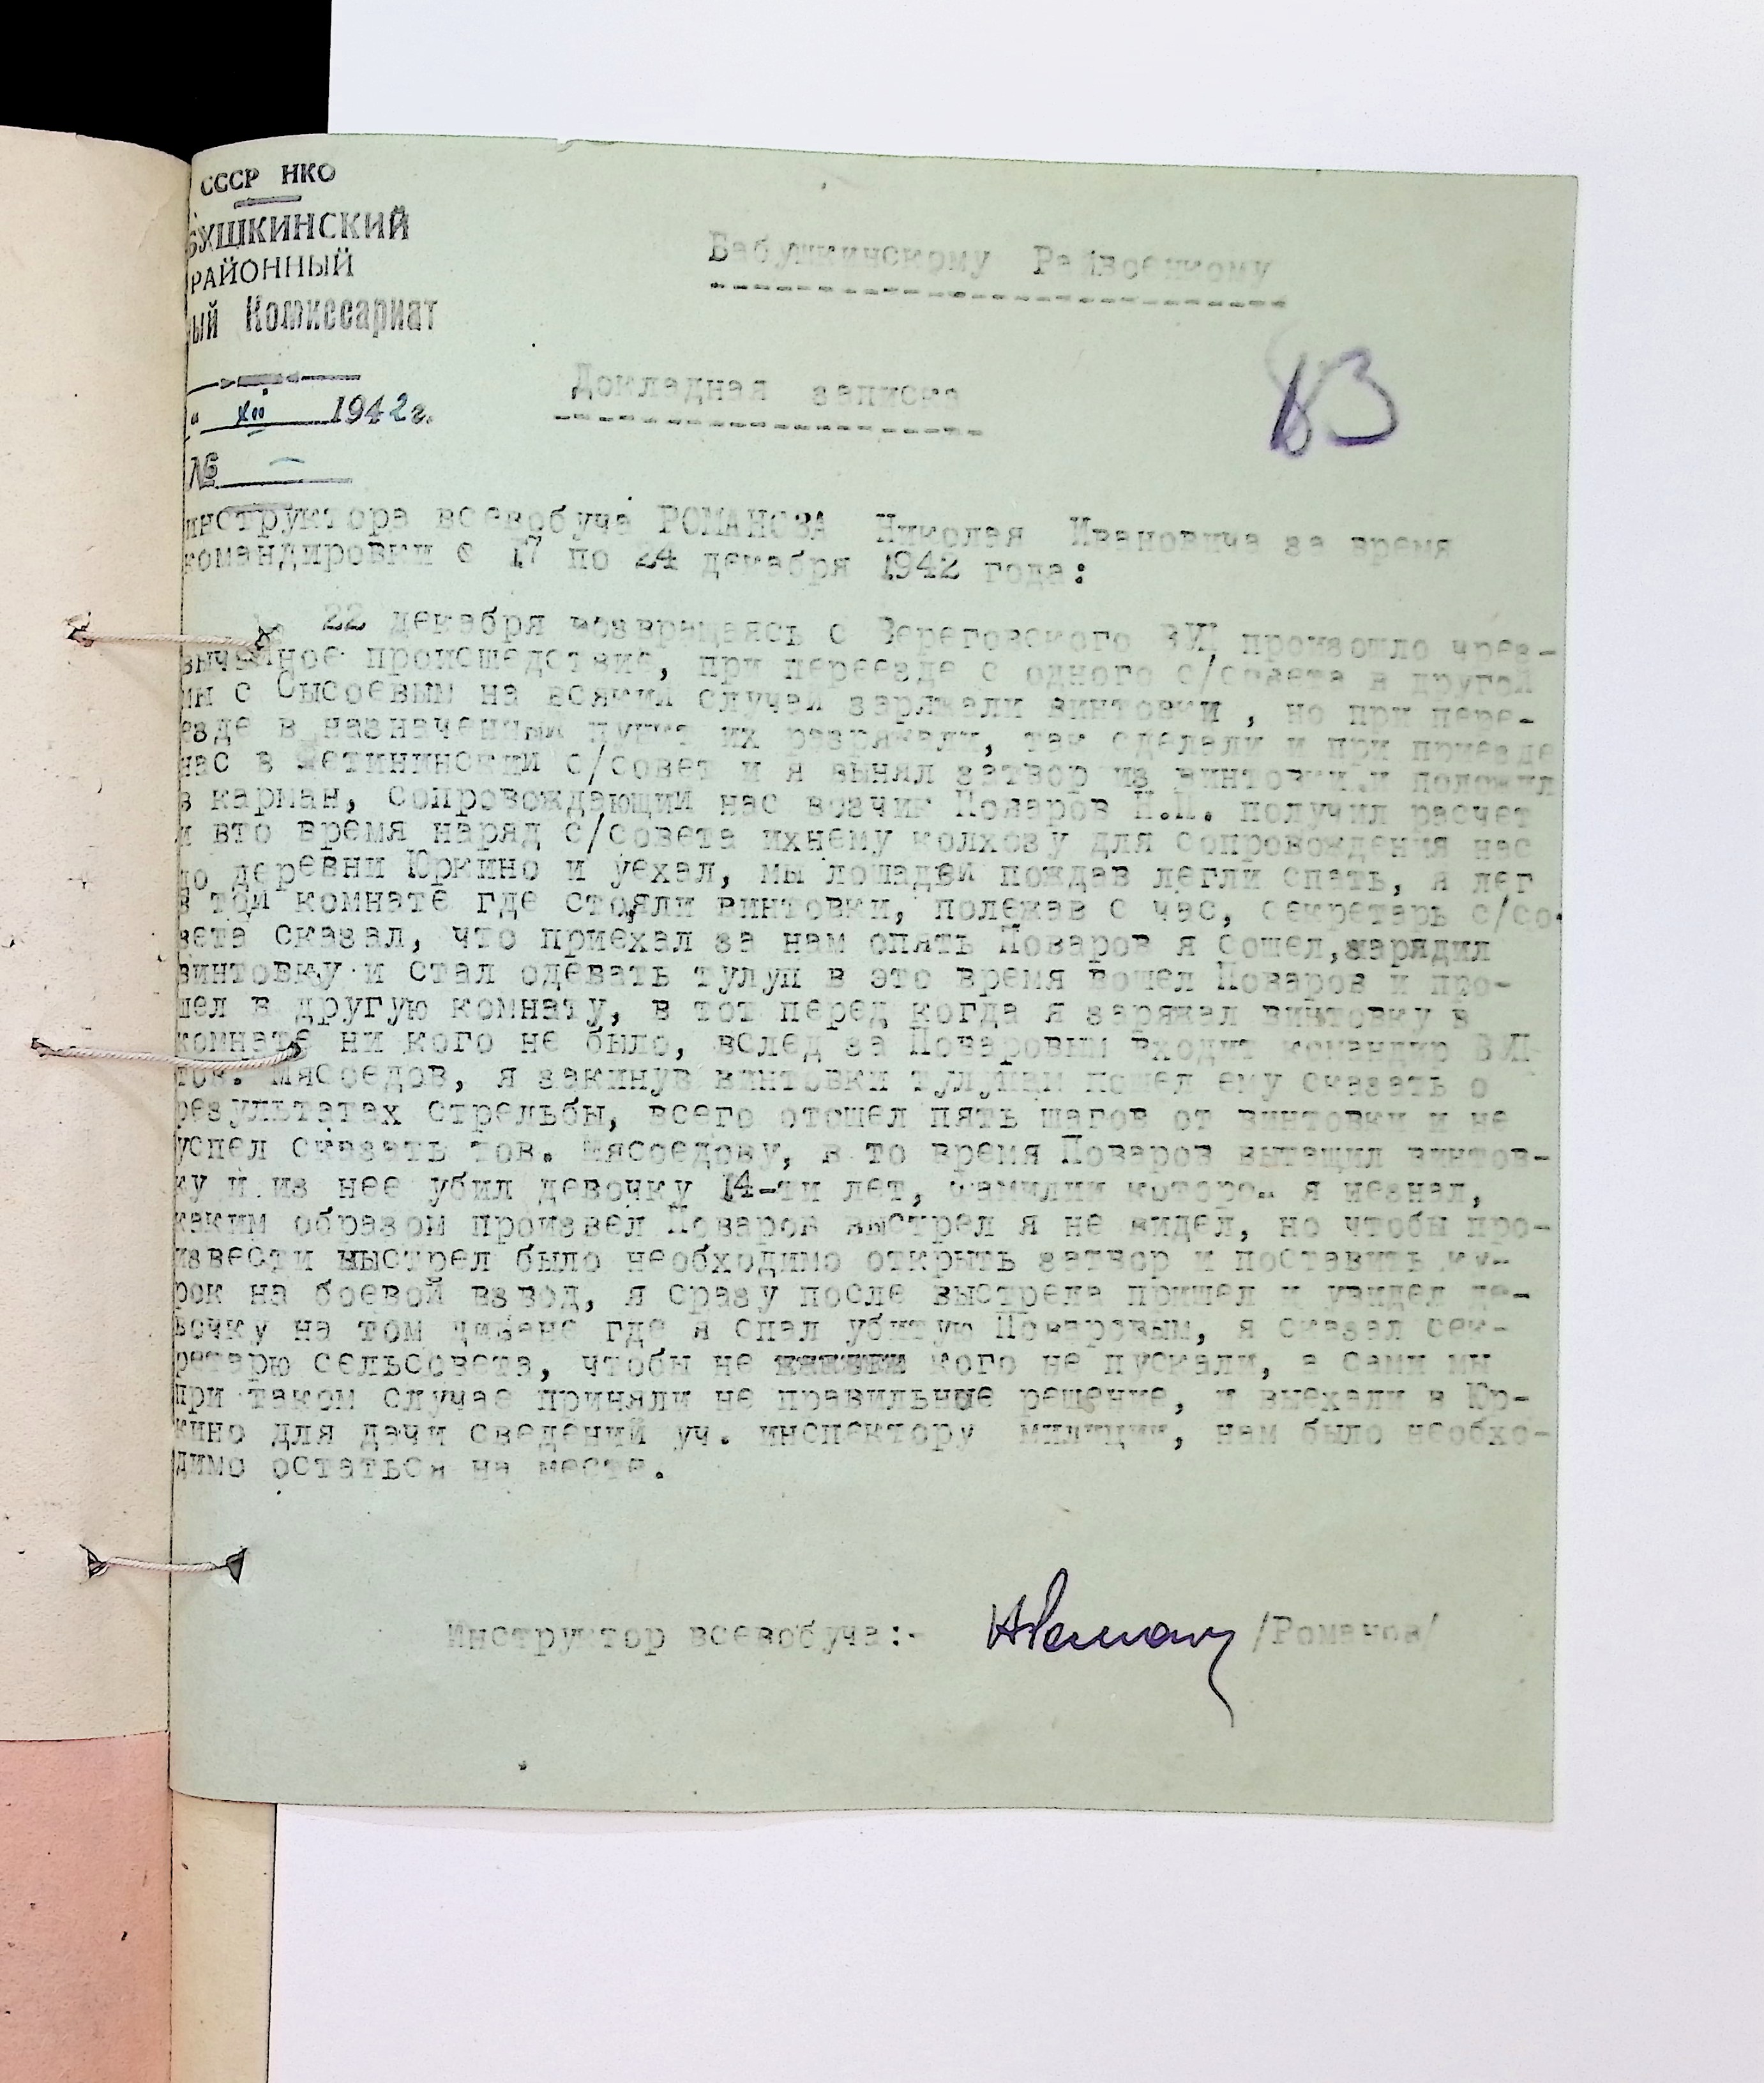 СССР НКО
БУШКИНСКИЙ
РАЙОННЫЙ
ый Комиссариат
" XII 1942 г.
№
Бабушкинскому Райвоенкому
83
Докладная записка
инструктора всевобуча РОМАНОВА Николая Ивановича за время
командировки с 17 по 24 декабря 1942 года:
22 декабря возвращаясь с Береговского ВУП произошло чрез-
вычайное происшедствие, при переезде с одного с/совета в другой
мы с Сысоевым на всякий случай заряжали винтовки , но при пере-
езде в назначенный пункт их разряжали, так сделали и при приезде
нас в с/совет и я вынял затвор из винтовки и положил
в карман, сопровождающий нас возчик Поваров Н.П. получил расчет
и вто время наряд с/совета ихнему колхозу для сопровождения нас
до деревни Юркино и уехал, мы лошадей пождав легли спать, я лег
в той комнате где стояли винтовки, полежав с час, секретарь с/со-
вета сказал, что приехал за нам опять Поваров я сошел,зарядил
винтовку и стал одевать тулуп в это время вошел Поваров и про-
шел в другую комнату, в тот перед когда я заряжал винтовку в
комнате ни кого не было, вслед за Поваровым входит командир ВУП
тов. Мясоедов, я закинув винтовки тулупам пошел ему сказать о
результатах стрельбы, всего отошел пять шагов от винтовки и не
успел сказать тов. Мясоедову, в то время Поваров вытащил винтов-
ку и из нее убил девочку 14-ти лет, фамилии которой я незнал,
каким образом произвел Поваров выстрел я не видел, но чтобы про-
извести выстрел было необходимо открыть затвор и поставить ку-
рок на боевой взвод, я сразу после выстрела пришел и увидел де-
вочку на том диване где я спал убитую Поваровым, я сказал сек-
ретарю сельсовета, чтобы не кого не пускали, а сами мы
при таком случае приняли не правильные решение, и выехали в Юр-
кино для дачи сведений уч. инспектору милиции, нам было необхо-
димо остаться на месте.
Инструктор всевобуча:- НРоманов /Романов/